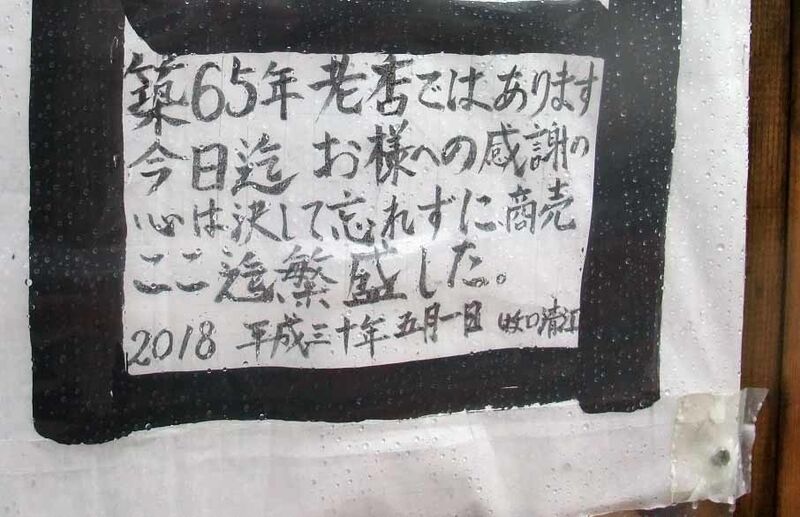 築65年 老店ではあります
今日迄 お様への感謝の
心は決して忘れずに商売
ここ迄繁盛した。
2018 平成三十年五月一日 牧口清江